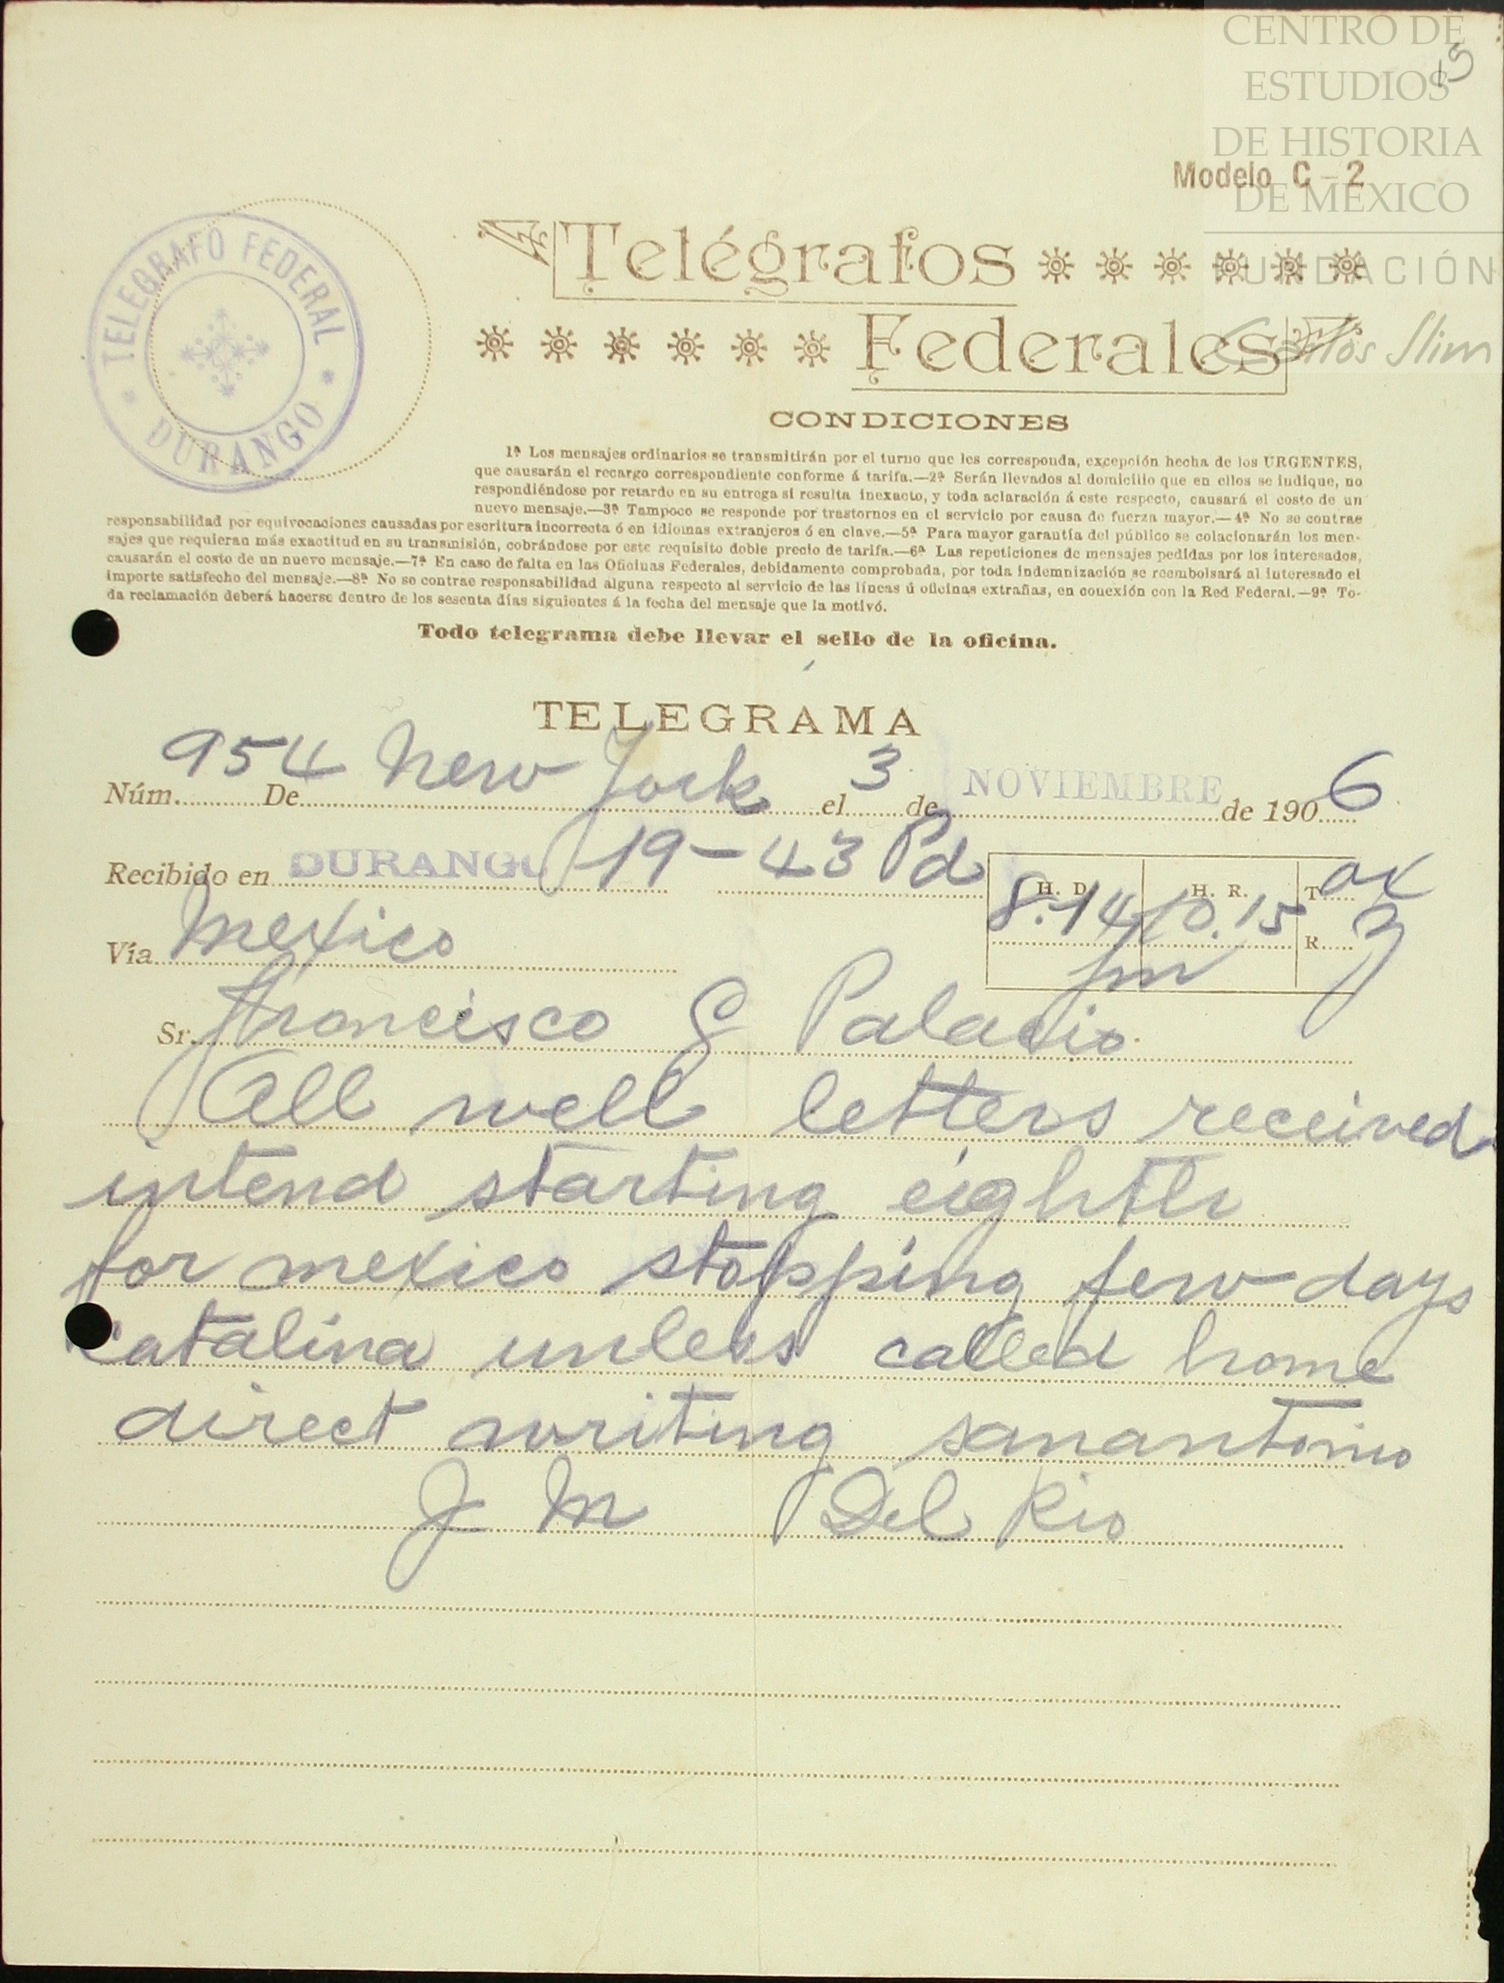 CENTRO DE
ESTUDIOS
DE HISTORIA
DE MÉXICO
FUNDACIÓN
Carlos Slim
15
Modelo C-2
TELEGRAFO FEDERAL
* DURANGO *
Telégrafos
Federales
CONDICIONES
1ª Los mensajes ordinarios se transmitirán por el turno que les corresponda, excepción hecha de los URGENTES,
que causarán el recargo correspondiente conforme á tarifa.—2ª Serán llevados al domicilio que en ellos se indique, no
respondiéndose por retardo en su entrega si resulta inexacto, y toda aclaración á este respecto, causará el costo de un
nuevo mensaje.—3ª Tampoco se responde por trastornos en el servicio por causa de fuerza mayor.—4ª No se contrae
responsabilidad por equivocaciones causadas por escritura incorrecta ó en idiomas extranjeros ó en clave.—5ª Para mayor garantía del público se colacionarán los men-
sajes que requieran más exactitud en su transmisión, cobrándose por este requisito doble precio de tarifa.—6ª Las repeticiones de mensajes pedidas por los interesados,
causarán el costo de un nuevo mensaje.—7ª En caso de falta en las Oficinas Federales, debidamente comprobada, por toda indemnización se reembolsará al interesado el
importe satisfecho del mensaje.—8ª No se contrae responsabilidad alguna respecto al servicio de las líneas ú oficinas extrañas, en conexión con la Red Federal.—9ª To-
da reclamación deberá hacerse dentro de los sesenta días siguientes á la fecha del mensaje que la motivó.
Todo telegrama debe llevar el sello de la oficina.
TELEGRAMA
Núm. 954 De New York el 3 de NOVIEMBRE de 1906
Recibido en DURANGO 19-43 Pd H. D. 8.14 H. R. 10.15 T
Vía Mexico R
Sr. Francisco G Palacio
All well letters received
intend starting eighth
for mexico stopping few days
Catalina unless called home
direct writing sanantonio
J M Del Rio